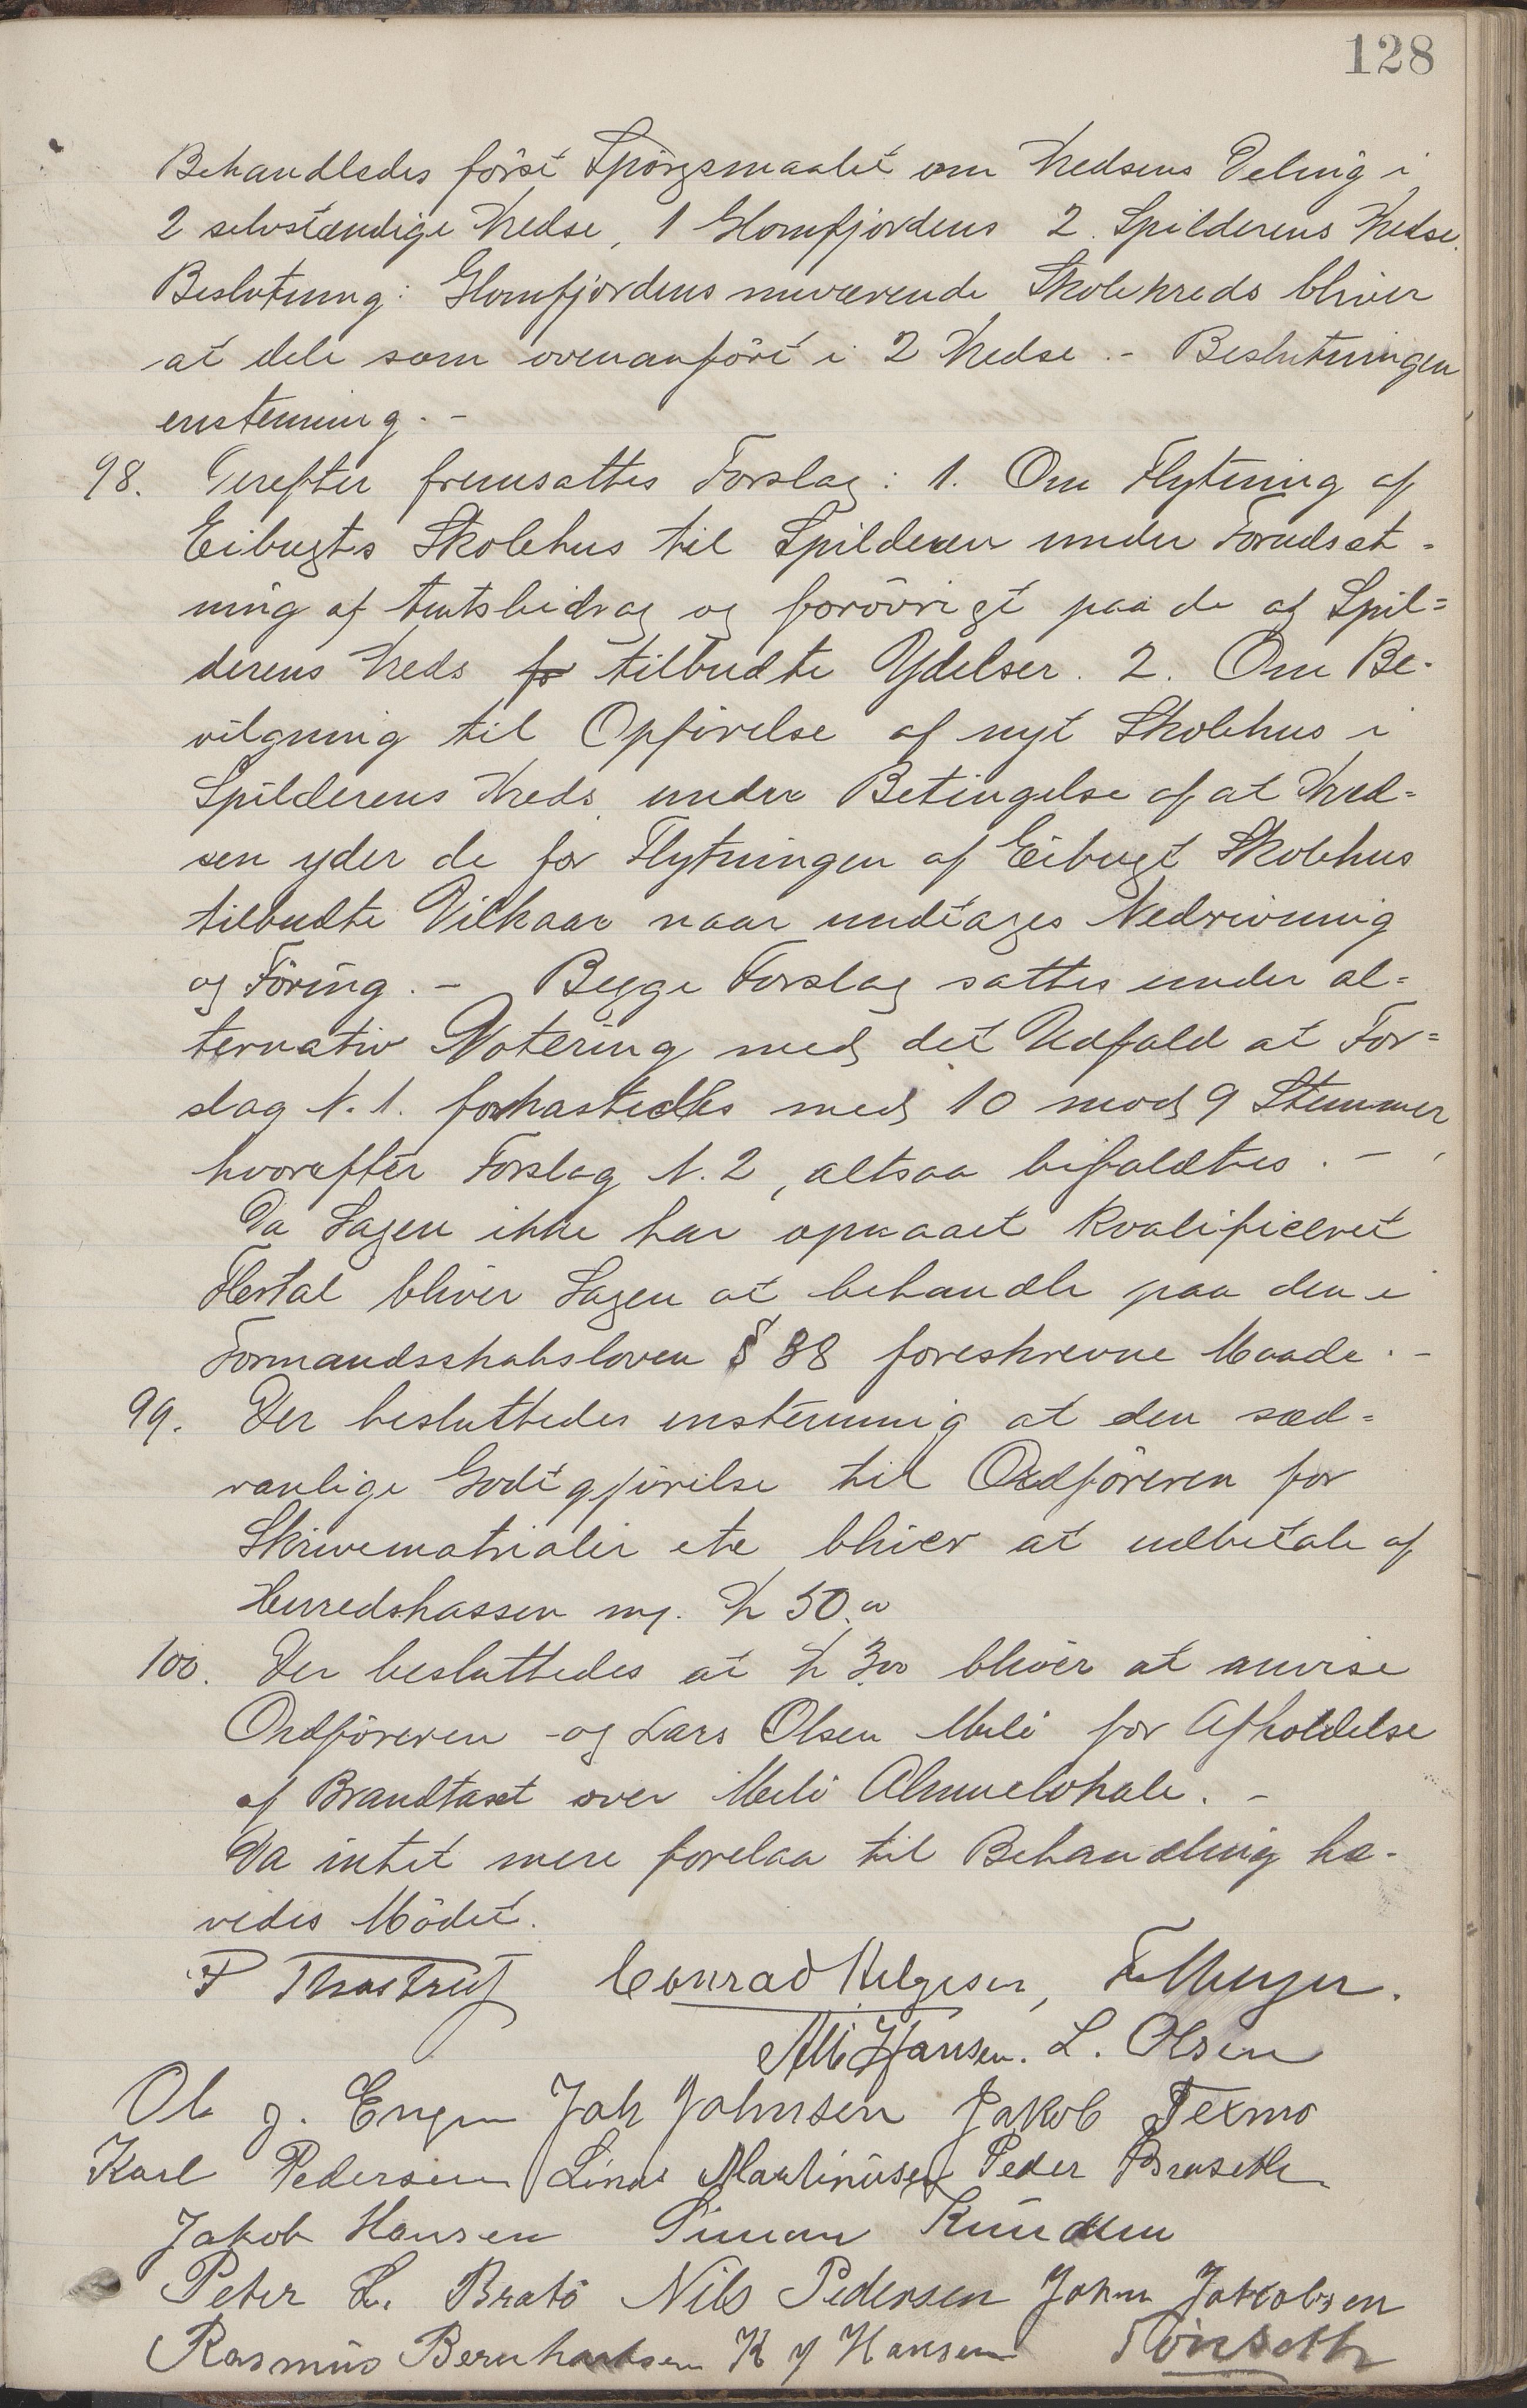 128
Behandledes först Spörgsmaalet om Kredsens Deling i
2 selvstændige Kredse, 1 Glomfjordens 2. Spilderens Kredse.
Beslutning: Glomfjordens nuværende Skolekreds bliver
at dele som ovenanfört i 2 Kredse. - Beslutningen
enstemmig. -
98. Derefter fremsattes Forslag: 1. Om Flytning af
Eibugts Skolehus til Spilderen under Forudsæt-
ning af Amtsbidrag og forövrigt paa de af Spil=
derens Kreds tilbudte Ydelser. 2. Om Be-
vilgning til Opförelse af nyt Skolehus i
Spilderens Kreds under Betingelse af at Kred=
sen yder de for Flytningen af Eibugt Skolehus
tilbudte Vilkaar naar undtages Nedrivning
og Föring. - Begge Forslag sattes under al=
ternativ Votering med det Udfald at For=
slag N. 1. forkastedes med 10 mod 9 Stemmer
hvorefter Forslag N. 2, altsaa bifaldtes. -
Da Sagen ikke har opnaaet kvalificeret
Flertal bliver Sagen at behandle paa den i
Formandsskabsloven § 38 foreskrevne Maade. -
99. Der besluttedes enstemmig at den sæd=
vanlige Godtgjörelse til Ordföreren for
Skrivematrialier etc bliver at udbetale af
Herredskassen m/. Kr 50.00
100. Der besluttedes at Kr 3.00 bliver at anvise
Ordföreren - og Lars Olsen Meli for Afholdelse
af Brandtaxt over Meli Almuelokale. -
Da intet mere forelaa til Behandling hæ-
vedes Mödet.
P Thostrup Conrad Helgesen, Fr Meyer.
Hansen. L. Olsen
Ole J. Engen Joh Johnsen Jakob Texmo
Karl Pedersen Linus Martinusen Peder Braseth
Jakob Hansen Simon Knudsen
Peter L. Bratö Nils Pedersen Johan Jakobsen
Rasmus Bernhardsen K J Hansen Tönseth